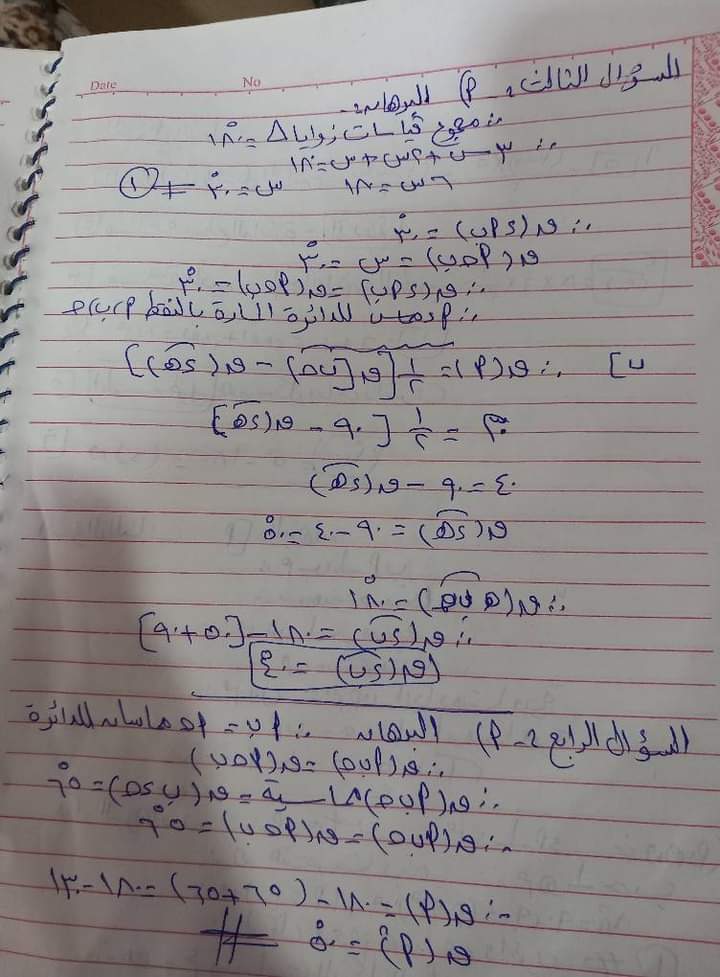 Date No
السؤال الثالث: ٢) البرهان:
∵ مجموع قياسات زوايا Δ = ١٨٠°
∴ ٣س + ٢س + س = ١٨٠
٦س = ١٨٠ س = ٣٠° # ①
∴ ق(د٢ب) = ٣٠°
ق(٢حـب) = س = ٣٠°
∴ ق(د٢ب) = ق(٢حـب) = ٣٠°
∴ ٢د مماس للدائرة المارة بالنقط ٢، ب، حـ
ب] ∴ ق(٢) = ١/٢ [ق(حـب) − ق(دهـ)]
٢٠ = ١/٢ [٩٠ − ق(دهـ)]
٤٠ = ٩٠ − ق(دهـ)
ق(دهـ) = ٩٠ − ٤٠ = ٥٠°
∴ ق(حـبهـ) = ١٨٠°
∴ ق(دب) = ١٨٠ − [٥٠ + ٩٠]
ق(دب) = ٤٠°
السؤال الرابع: ٢) البرهان ∵ ٢ب = ٢حـ مماسان للدائرة
∴ ق(٢بحـ) = ق(٢حـب)
∵ ق(٢بحـ) مماسية = ق(بدحـ) = ٦٥°
∴ ق(٢بحـ) = ق(٢حـب) = ٦٥°
∴ ق(٢) = ١٨٠ − (٦٥ + ٦٥) = ١٨٠ − ١٣٠
ق(٢) = ٥٠° #